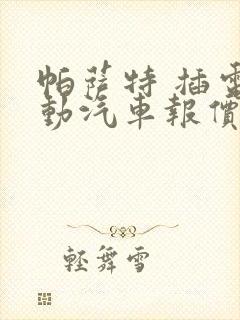 帕薩特 插電
動汽車報價
輕舞雪